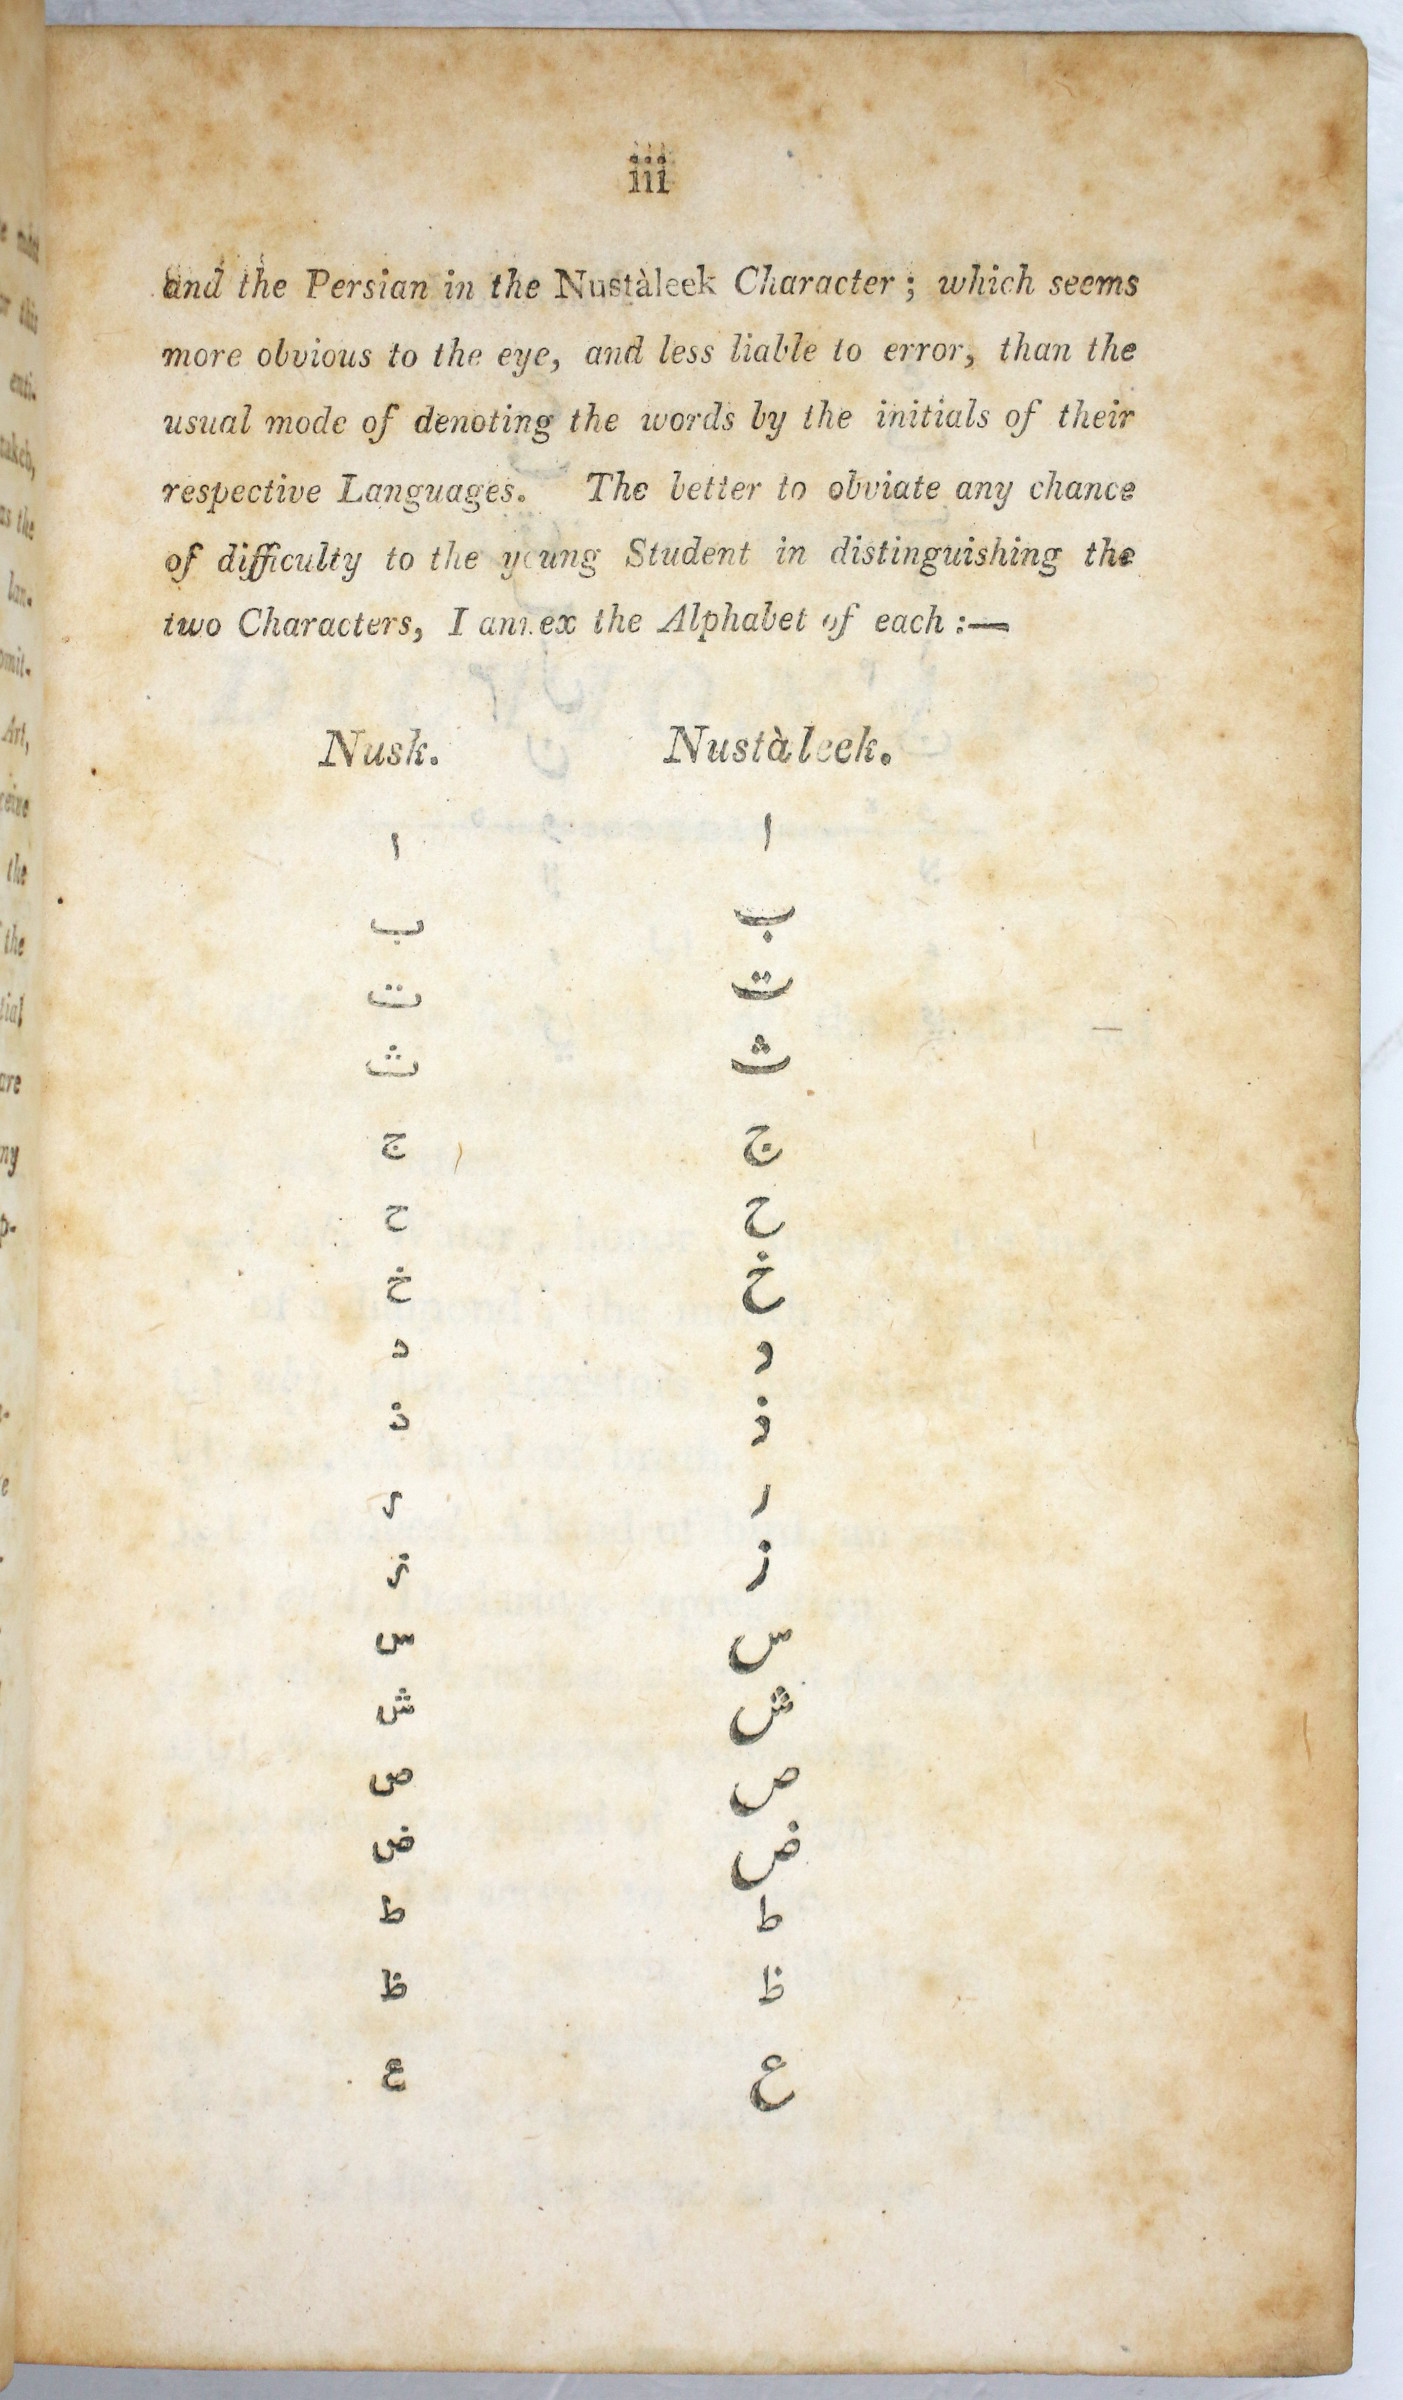 iii
and the Persian in the Nustàleek Character; which seems
more obvious to the eye, and less liable to error, than the
usual mode of denoting the words by the initials of their
respective Languages. The better to obviate any chance
of difficulty to the young Student in distinguishing the
two Characters, I annex the Alphabet of each :—
Nusk. Nustàleek.
ا ا
ب ب
ت ت
ث ث
ج ج
ح ح
خ خ
د د
ذ ذ
ر ر
ز ز
س س
ش ش
ص ص
ض ض
ط ط
ظ ظ
ع ع